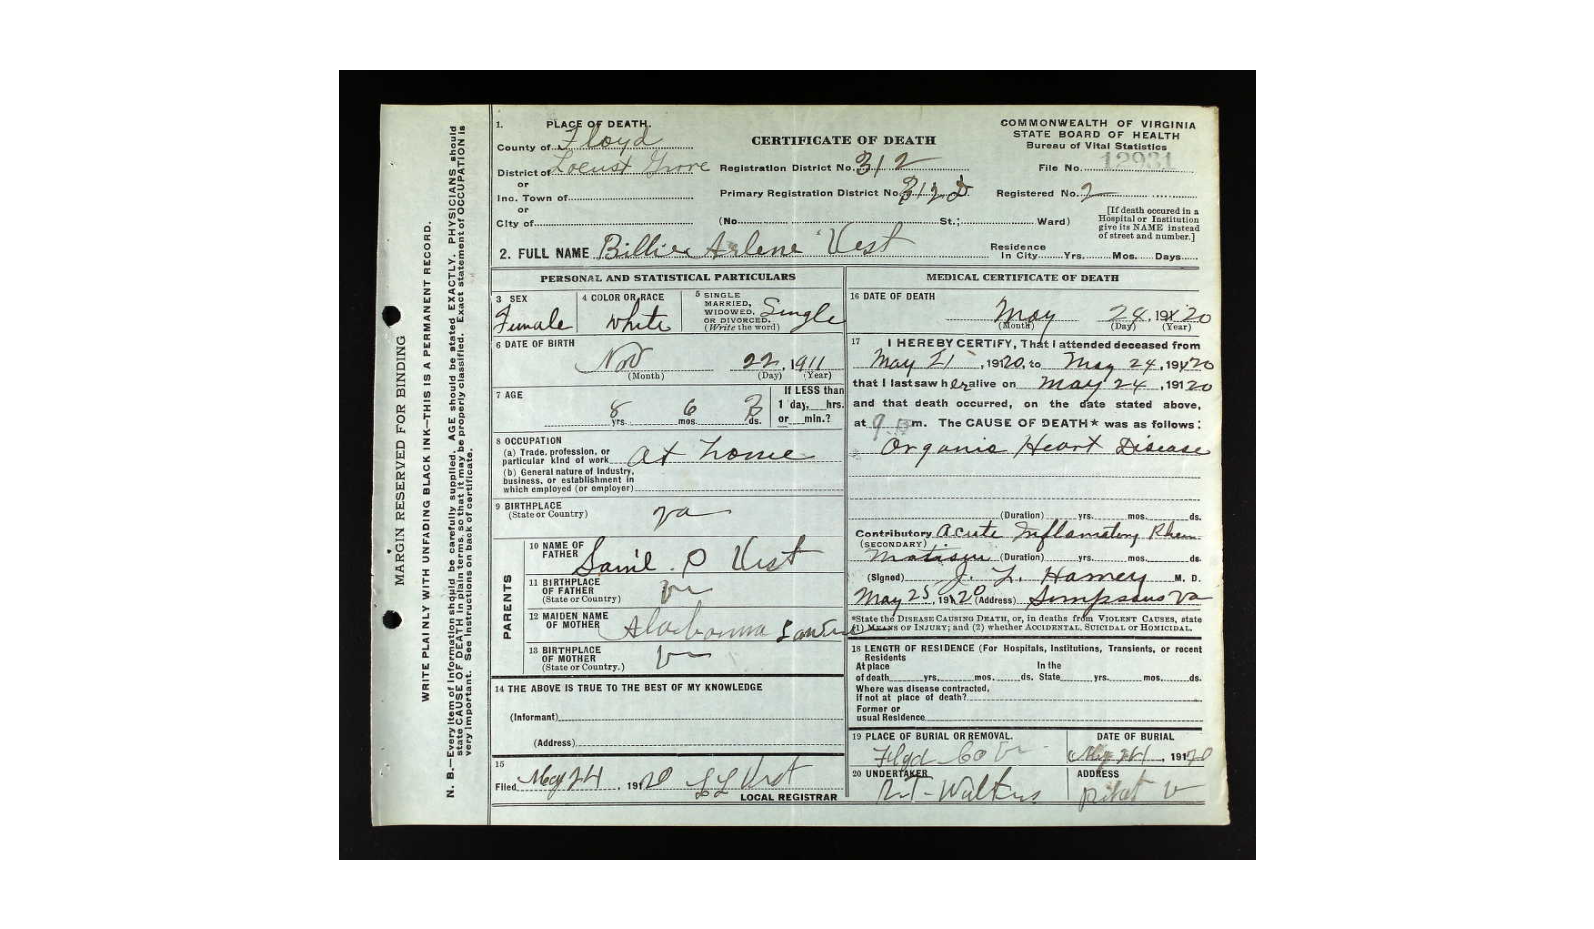 MARGIN RESERVED FOR BINDING
WRITE PLAINLY WITH UNFADING BLACK INK—THIS IS A PERMANENT RECORD.
N. B.—Every item of information should be carefully supplied. AGE should be stated EXACTLY. PHYSICIANS should
state CAUSE OF DEATH in plain terms, so that it may be properly classified. Exact statement of OCCUPATION is
very important. See instructions on back of certificate.
1. PLACE OF DEATH.
County of Floyd
District of Locust Grove
or
Inc. Town of
or
City of
CERTIFICATE OF DEATH
Registration District No. 312
Primary Registration District No. 312D
(No. St.; Ward)
COMMONWEALTH OF VIRGINIA
STATE BOARD OF HEALTH
Bureau of Vital Statistics
File No. 12931
Registered No. 2
[If death occured in a
Hospital or Institution
give its NAME instead
of street and number.]
2. FULL NAME Billie Arlene Vest
Residence
In City Yrs. Mos. Days
PERSONAL AND STATISTICAL PARTICULARS
3 SEX
Female
4 COLOR OR RACE
White
5 SINGLE
MARRIED,
WIDOWED,
OR DIVORCED.
(Write the word)
Single
6 DATE OF BIRTH
Nov 22, 1911
(Month) (Day) (Year)
7 AGE
8 yrs. 6 mos. ds.
If LESS than
1 day, hrs.
or min.?
8 OCCUPATION
(a) Trade, profession, or
particular kind of work At home
(b) General nature of industry,
business, or establishment in
which employed (or employer)
9 BIRTHPLACE
(State or Country) Va
PARENTS
10 NAME OF
FATHER Saml. P Vest
11 BIRTHPLACE
OF FATHER
(State or Country) Va
12 MAIDEN NAME
OF MOTHER
13 BIRTHPLACE
OF MOTHER
(State or Country.) Va
14 THE ABOVE IS TRUE TO THE BEST OF MY KNOWLEDGE
(Informant)
(Address)
15
Filed May 24, 1920 Vest
LOCAL REGISTRAR
MEDICAL CERTIFICATE OF DEATH
16 DATE OF DEATH
May 24, 1920
(Month) (Day) (Year)
17 I HEREBY CERTIFY, That I attended deceased from
May 21, 19120, to May 24, 19120
that I last saw her alive on May 24, 19120
and that death occurred, on the date stated above,
at 9 m. The CAUSE OF DEATH* was as follows:
Organic Heart Disease
(Duration) yrs. mos. ds.
Contributory Acute Inflamatory Rheu
(SECONDARY)
matism (Duration) yrs. mos. ds.
(Signed) J. L. M. D.
May 25, 1920 (Address) Simpsons Va
*State the DISEASE CAUSING DEATH, or, in deaths from VIOLENT CAUSES, state
(1) MEANS OF INJURY; and (2) whether ACCIDENTAL, SUICIDAL OR HOMICIDAL.
18 LENGTH OF RESIDENCE (For Hospitals, Institutions, Transients, or recent
Residents
At place In the
of death yrs. mos. ds. State yrs. mos. ds.
Where was disease contracted,
if not at place of death?
Former or
usual Residence
19 PLACE OF BURIAL OR REMOVAL.
Floyd Co Va
DATE OF BURIAL
May 1920
20 UNDERTAKER
ADDRESS